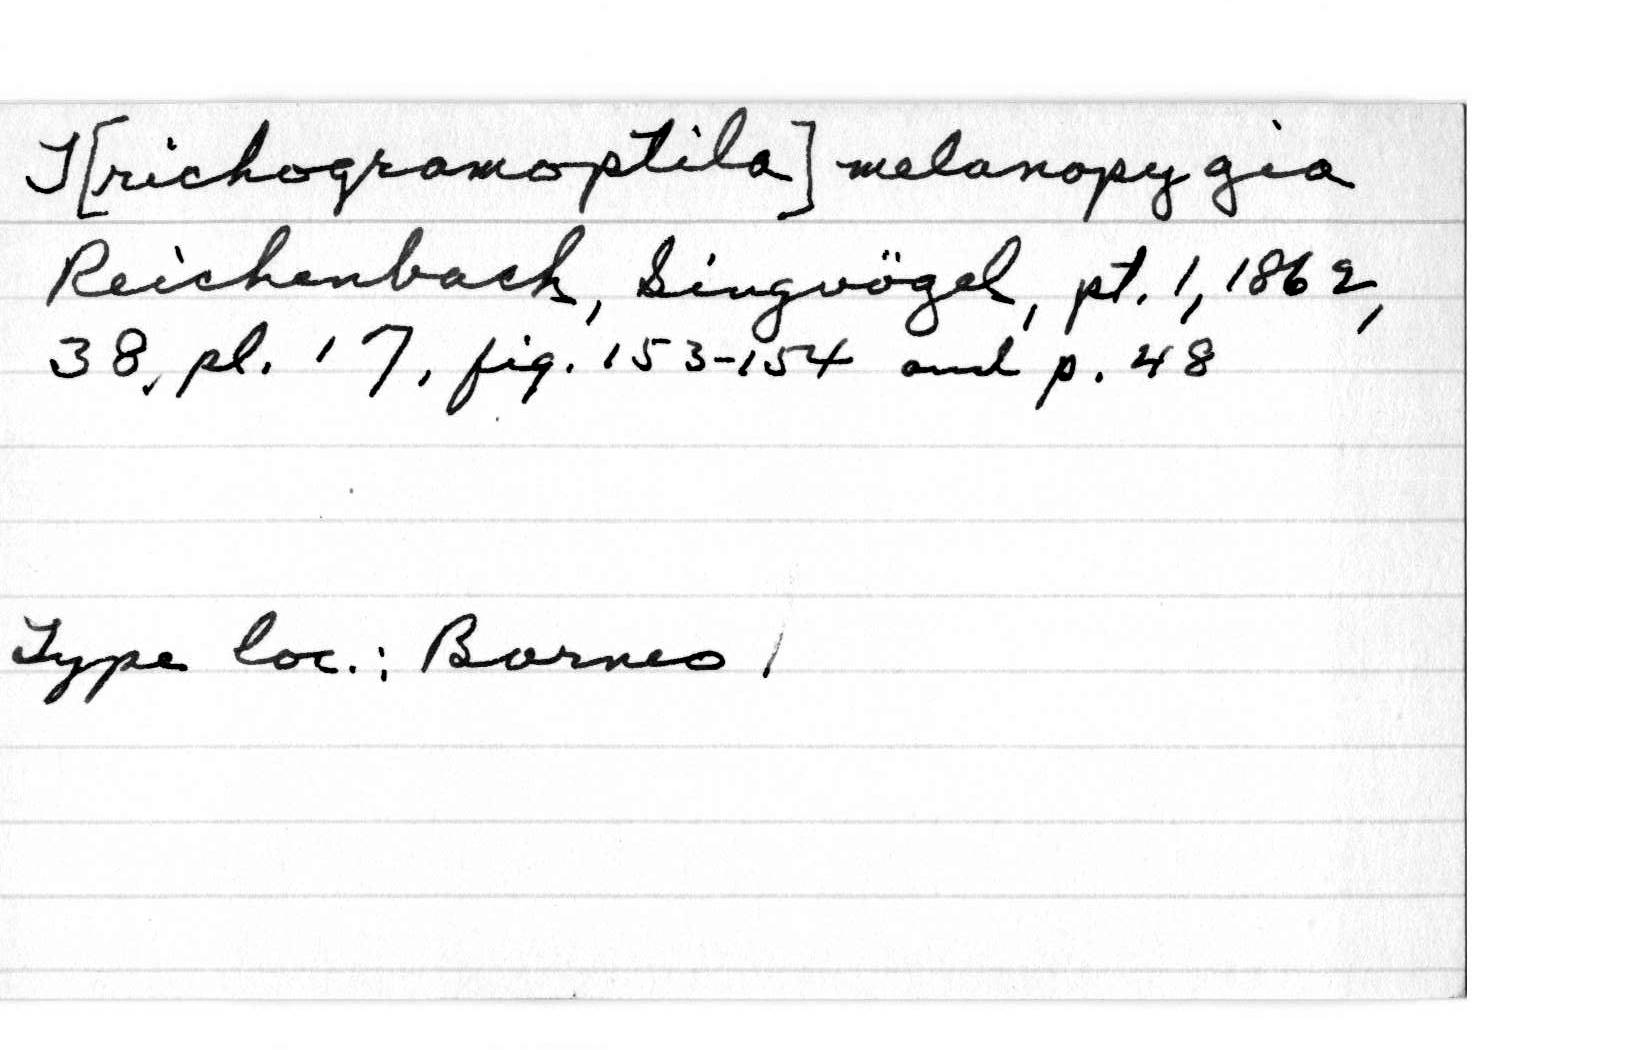 T[richogramoptila] melanopygia
Reichenbach, Singvögel, pt. 1, 1862,
38, pl. 17, fig. 153-154 and p. 48
Type loc.: Borneo /